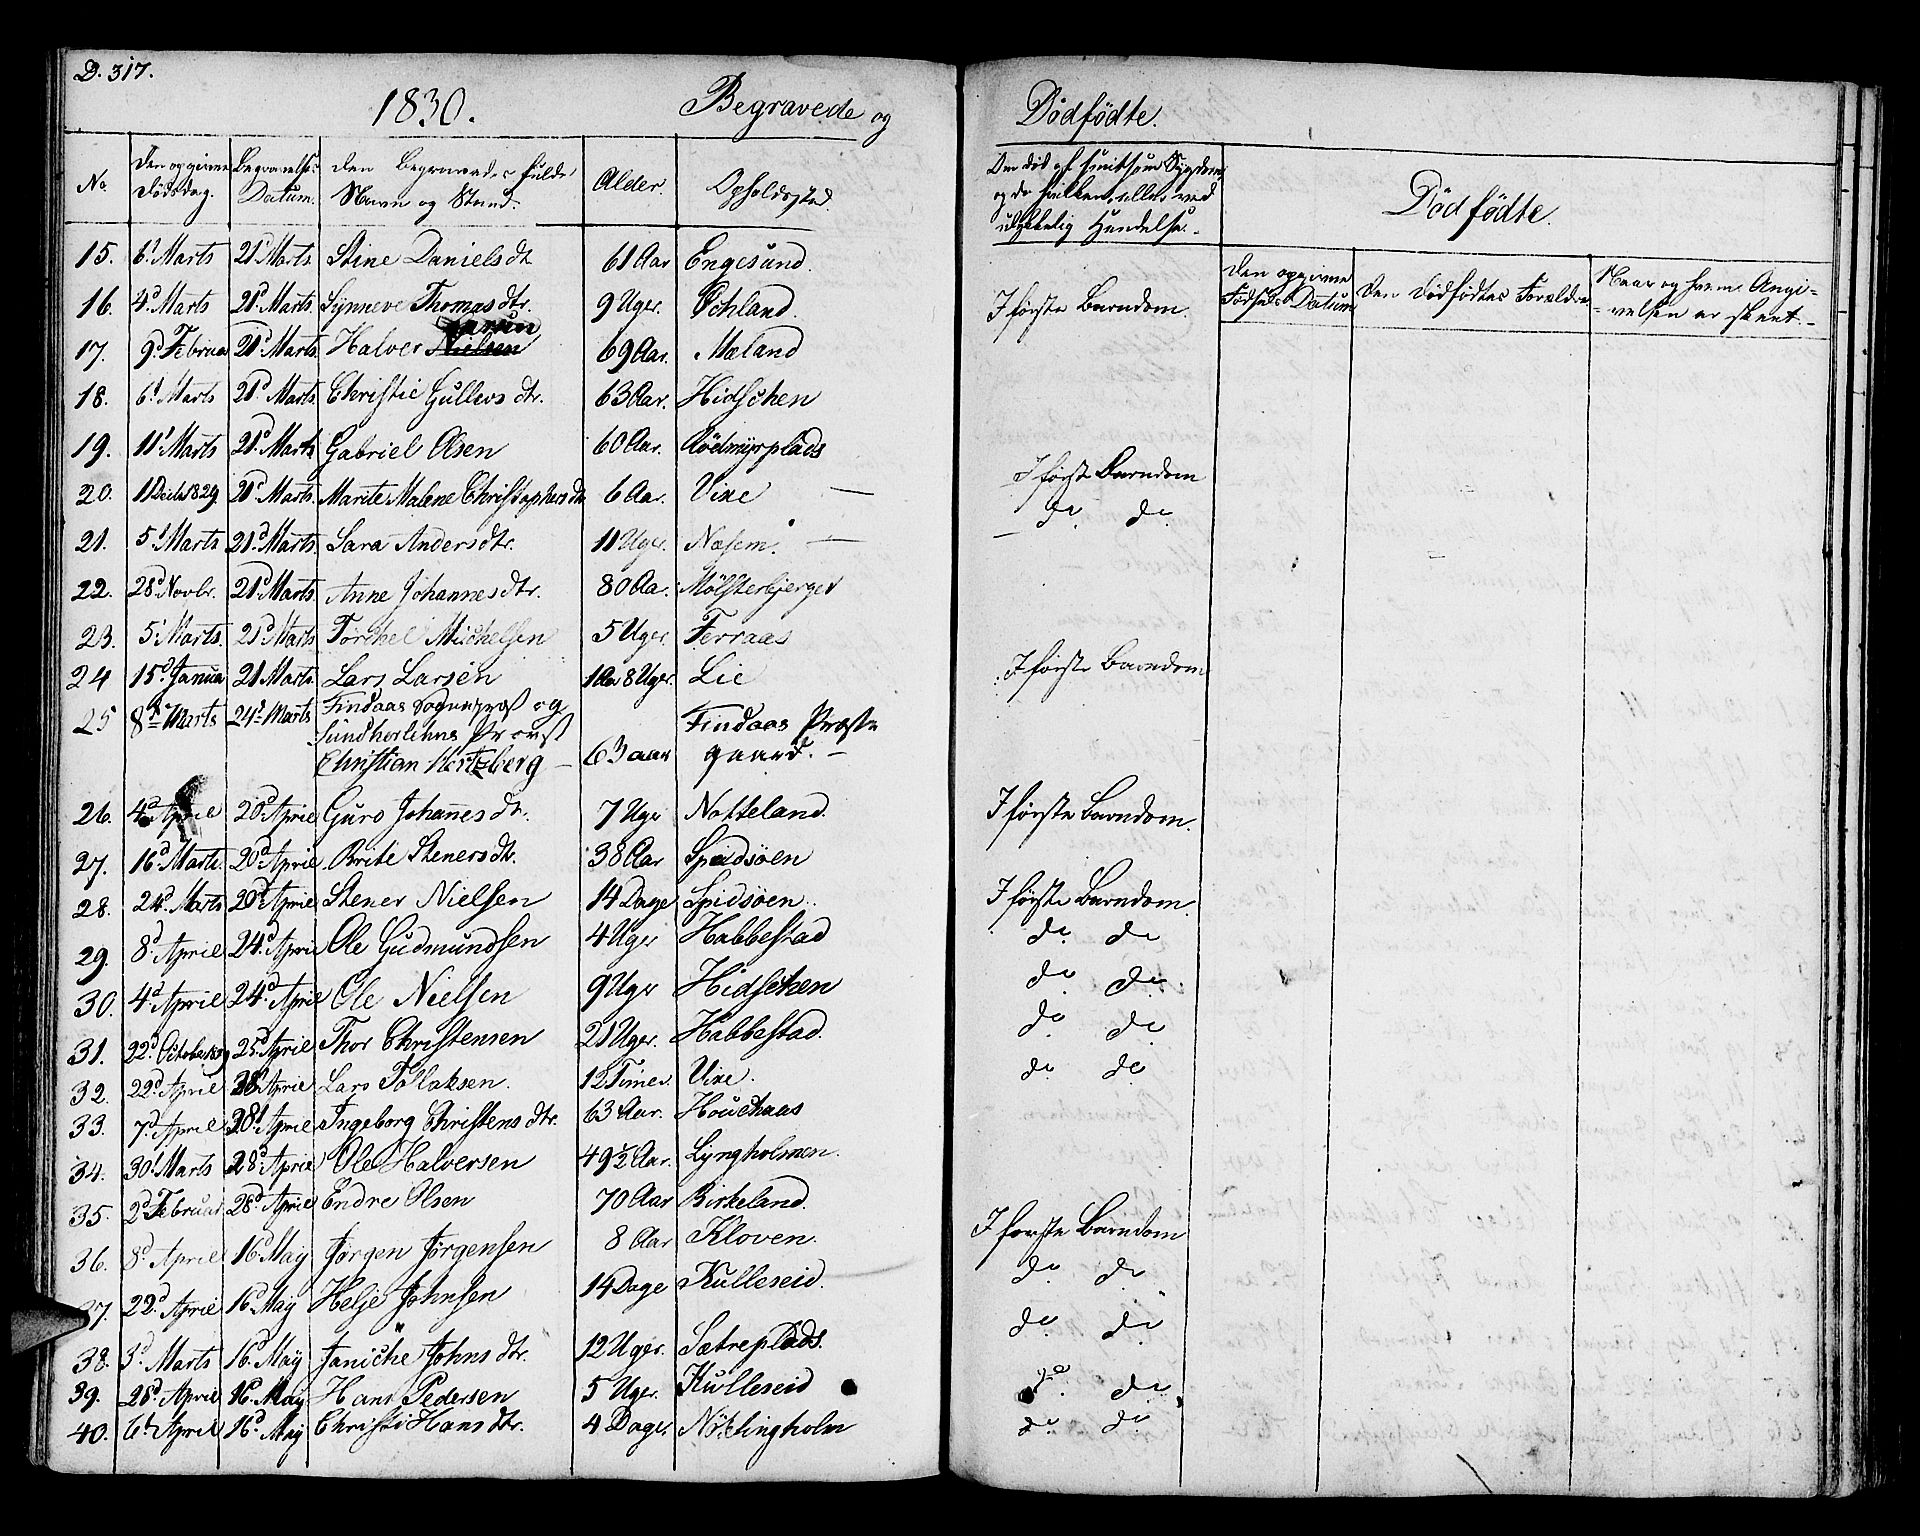 D. 317.
1830. Begravede og
Dødfødte.
No. Den opgivne Dødsdag. Begravelses Datum. Den Begravedes fulde Navn og Stand. Alder. Opholdssted.
Om død af smitsom Sygdom, og da hvilken, eller ved ulykkelig Hendelse.
Dødfødte.
Den opgivne Fødsels Datum Den Dødfødtes Forældre Naar og hvem Angivelsen er skeet.
15. 6t Marts 21d Marts. Stine Danielsdtr 61 Aar Engesund.
16. 4d Marts 21d Marts. Synneve Thomasdtr. 9 Uger. Øchland. I første Barndom.
17. 9d Februar 21d Marts. Halver 69 Aar. Mæland
18. 6t Marts 21d Marts. Christie Gullevsdtr. 63 Aar. Hidschen
19. 11t Marts 21d Marts Gabriel Olsen 60 Aar. Rødmyrplads
20. 1 Decbr 1829 21d Marts. Marite Malene Christophersdtr 6 Aar. Vixe — I først Barndom
21. 5t Marts 21d Marts. Sara Andersdtr. 11 Uger. Næsem. — do do
22. 28d Novbr. 21d Marts. Anne Johannesdtr. 80 Aar. Mølsterbjerget
23. 5t Marts. 21d Marts. Torchel Michelsen 5 Uger. Ferraas I første Barndom
24 15d Januar 21 Marts. Lars Larsen 1 Aar 8 Uger. Lie
25 8d Marts 24d Marts Findaas Sognepræst og
Sundhorlehns Provst
Christian Hertzberg — 63 aar Findaas Præste
gaard. —
26. 4d Aprile 20d Aprie Guro Johannesdtr. 7 Uger Notteland. I første Barndom.
27. 16d Marts. 20d Aprie Brite Stenersdtr. 38 Aar Spidsöen
28. 24d Marts 20d Aprie Stener Nielsen 14 Dage Spidsöen. I første Barndom.
29. 8d Aprile 24d Aprie Ole Gudmundsen 4 Uger Habbestad do do
30. 4d Aprie 24d Aprie Ole Nielsen 9 Uger Hidschen do do
31. 22d October 1829 25d Aprie Thor Christensen 21 Uger. Habbestad. do do
32. 22d Aprie 28d Aprie Lars Tollaksen. 12 Timer. Vixe. do do
33. 7d Aprie 28d Aprie Ingeborg Christensdtr. 63 Aar. Houchaas
34. 30t Marts 28d Aprie Ole Halversen 49½ Aar. Lyngholmen.
35. 2d Februar 28d Aprie Endre Olsen 70 Aar Birkeland.
36. 8d Aprie 16d May Jørgen Jørgensen 8 Aar Kloven. I første Barndom
37. 22d Aprie 16d May Helje Johnsen 14 Dage Kulleseid. do do
38. 3d Marts 16d May Janiche Johnsdtr. 12 Uger. Sætreplads. do do
39. 28d Aprie 16d May Hans Pedersen 5 Uger. Kulleseid do do
40. 6t Aprie 16d May Christi Hansdtr. 4 Dage. Nøtlingholm do do